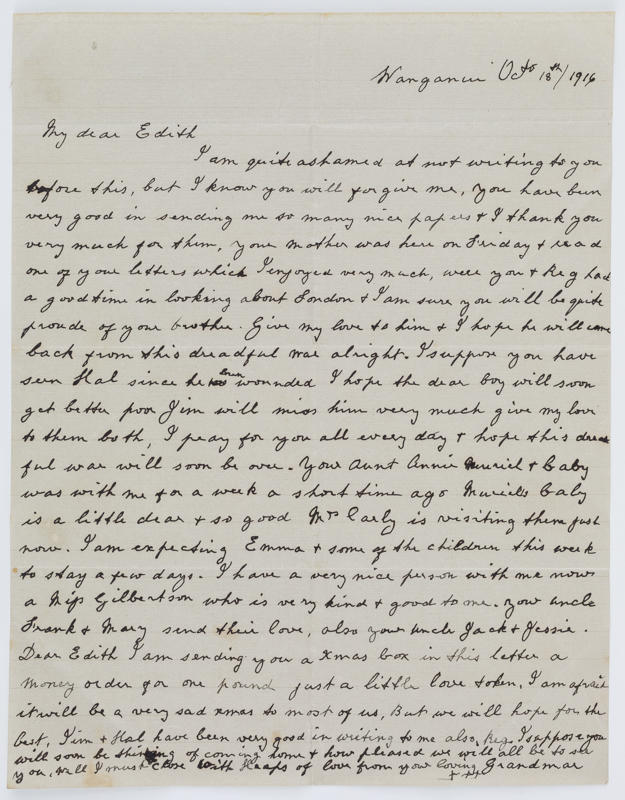 Wanganui Octo 18th/1916
My dear Edith
I am quite ashamed at not writing to you
before this, but I know you will forgive me, you have been
very good in sending me so many nice papers & I thank you
very much for them, your mother was here on Friday & read
one of your letters which I enjoyed very much, were you & Reg had
a good time in looking about London & I am sure you will be quite
proude of your brother. Give my love to him & I hope he will come
back from this dreadful war alright. I suppose you have
seen Hal since he been wounded I hope the dear boy will soon
get better poor Jim will miss him very much give my love
to them both, I pray for you all every day & hope this dread
ful war will soon be over. Your Aunt Annie Muriel & baby
was with me for a week a short time ago Muriels baby
is a little dear & so good Mrs Carly is visiting them just
now. I am expecting Emma & some of the children this week
to stay a few days. I have a very nice person with me now
a Miss Gilbertson who is very kind & good to me. your uncle
Frank & Mary send their love, also your uncle Jack & Jessie.
Dear Edith I am sending you a Xmas box in this letter a
money order for one pound just a little love token, I am afraid
it will be a very sad xmas to most of us, But we will hope for the
best, Jim & Hal have been very good in writing to me also, Reg. I suppose you
will soon be thinking of coming home & how pleased we will all be to see
you, Well I must close with Heaps of love from your loving Grandmar
+ ++